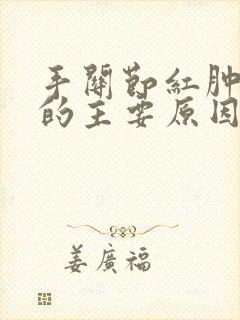 手關節紅肿
的主要原因
姜廣福